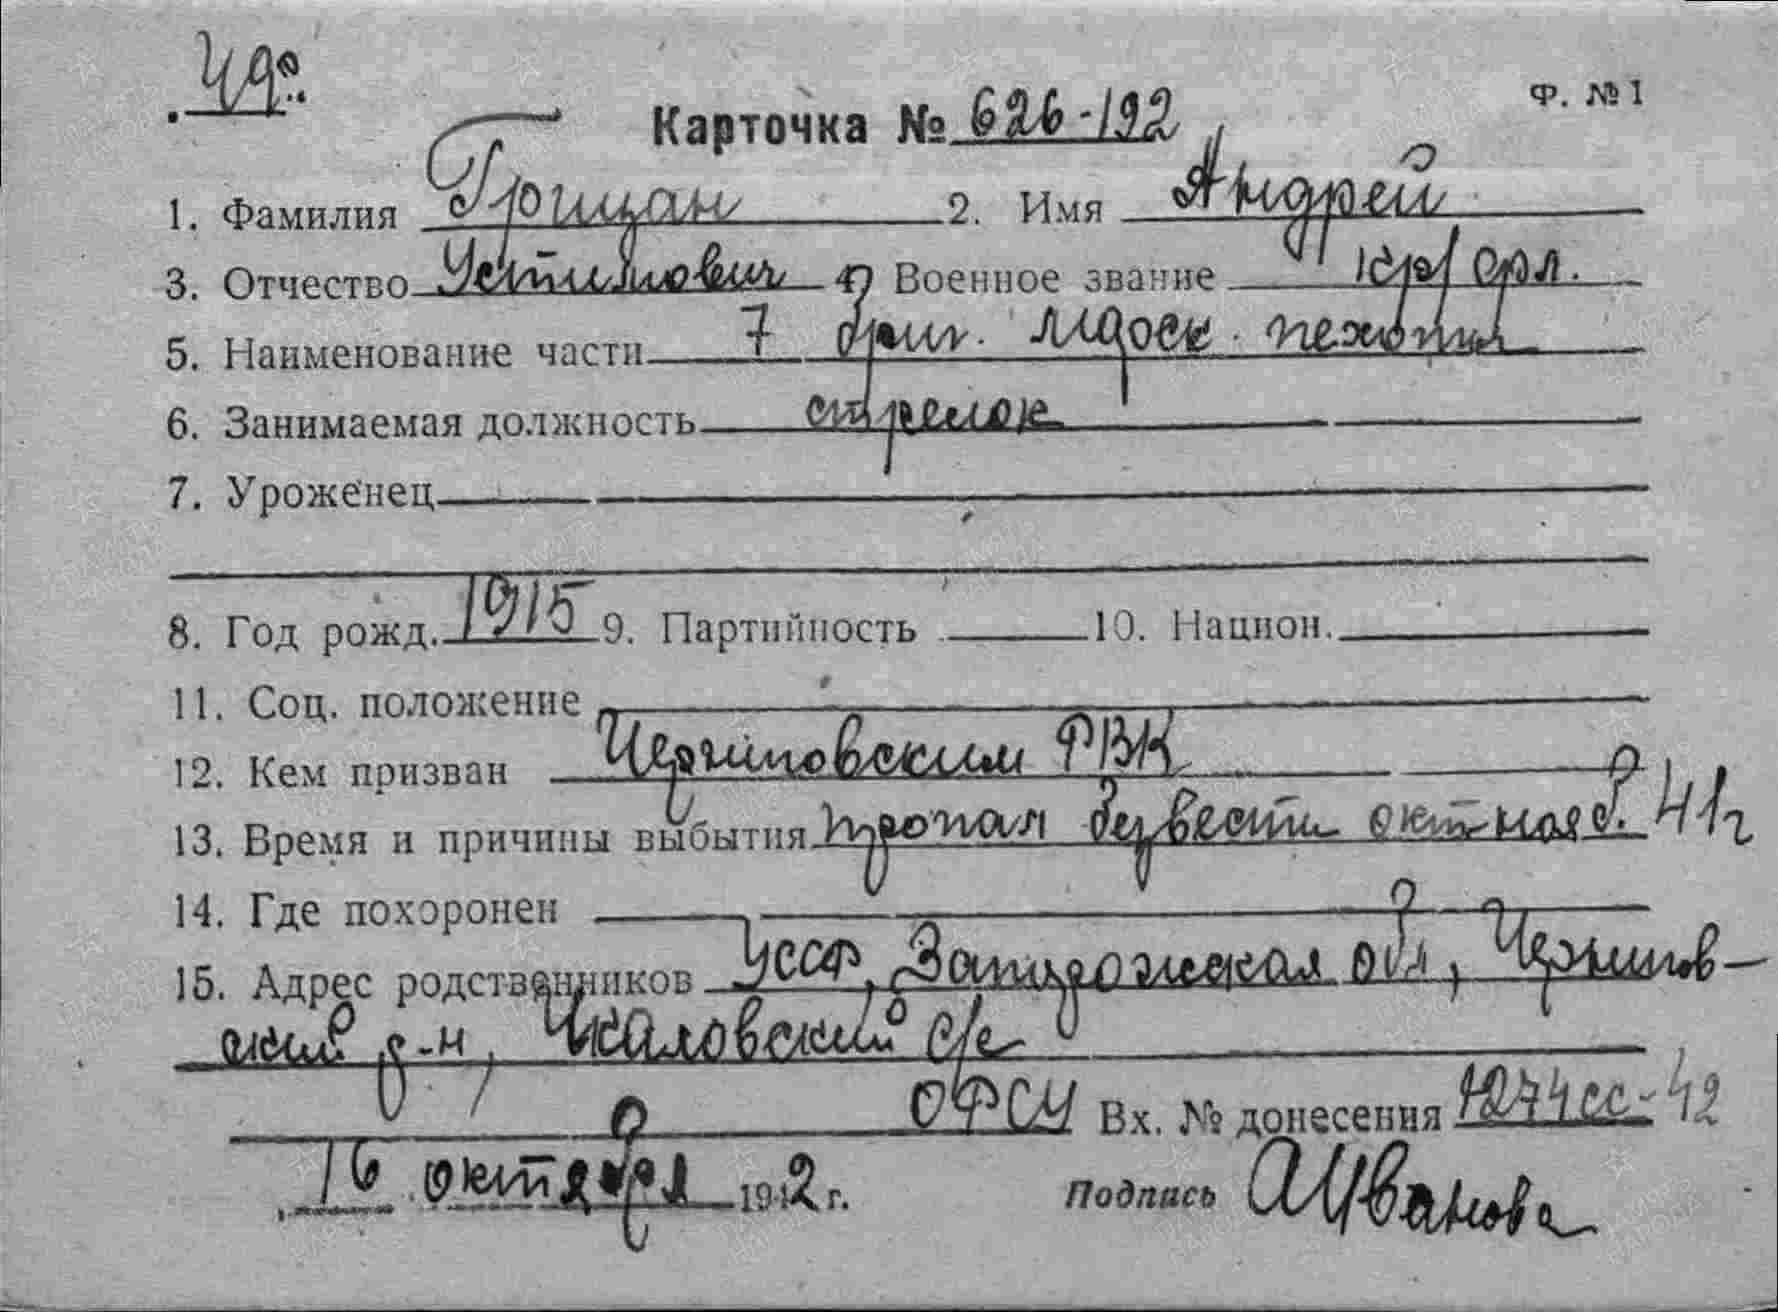 Ф. №1
Карточка № 626-192
1. Фамилия Грицан 2. Имя Андрей
3. Отчество Устимович 4) Военное звание кр/фл.
5. Наименование части 7 бриг. морск. пехоты
6. Занимаемая должность стрелок
7. Уроженец
8. Год рожд. 1915 9. Партийность 10. Национ.
11. Соц. положение
12. Кем призван Черниговским РВК
13. Время и причины выбытия пропал без вести 41г
14. Где похоронен
15. Адрес родственников УССР, Запорожская обл, Чернигов-
ский р-н, Чкаловский с/с
Вх. № донесения 1274сс-42
16 октября 1942 г. Подпись АИванова